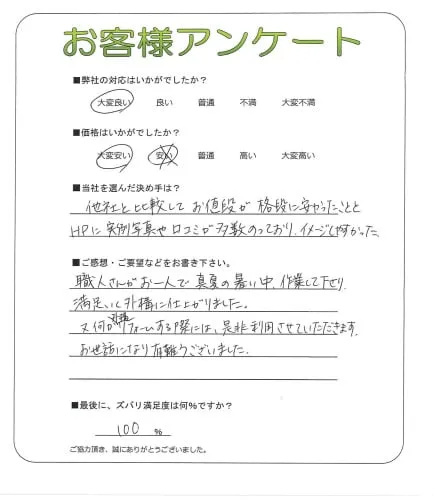 お客様アンケート
■弊社の対応はいかがでしたか？
大変良い 良い 普通 不満 大変不満
■価格はいかがでしたか？
大変安い 安い 普通 高い 大変高い
■当社を選んだ決め手は？
他社と比較してお値段が格段に安かったことと
HPに実例写真や口コミが多数のっており、イメージし易かった
■ご感想・ご要望などをお書き下さい。
職人さんがお一人で真夏の暑い中、作業して下さり
満足いく外構に仕上がりました。
又何かリフォームする際には、是非利用させていただきます。
お世話になり有難うございました。
■最後に、ズバリ満足度は何％ですか？
100 %
ご協力頂き、誠にありがとうございました。